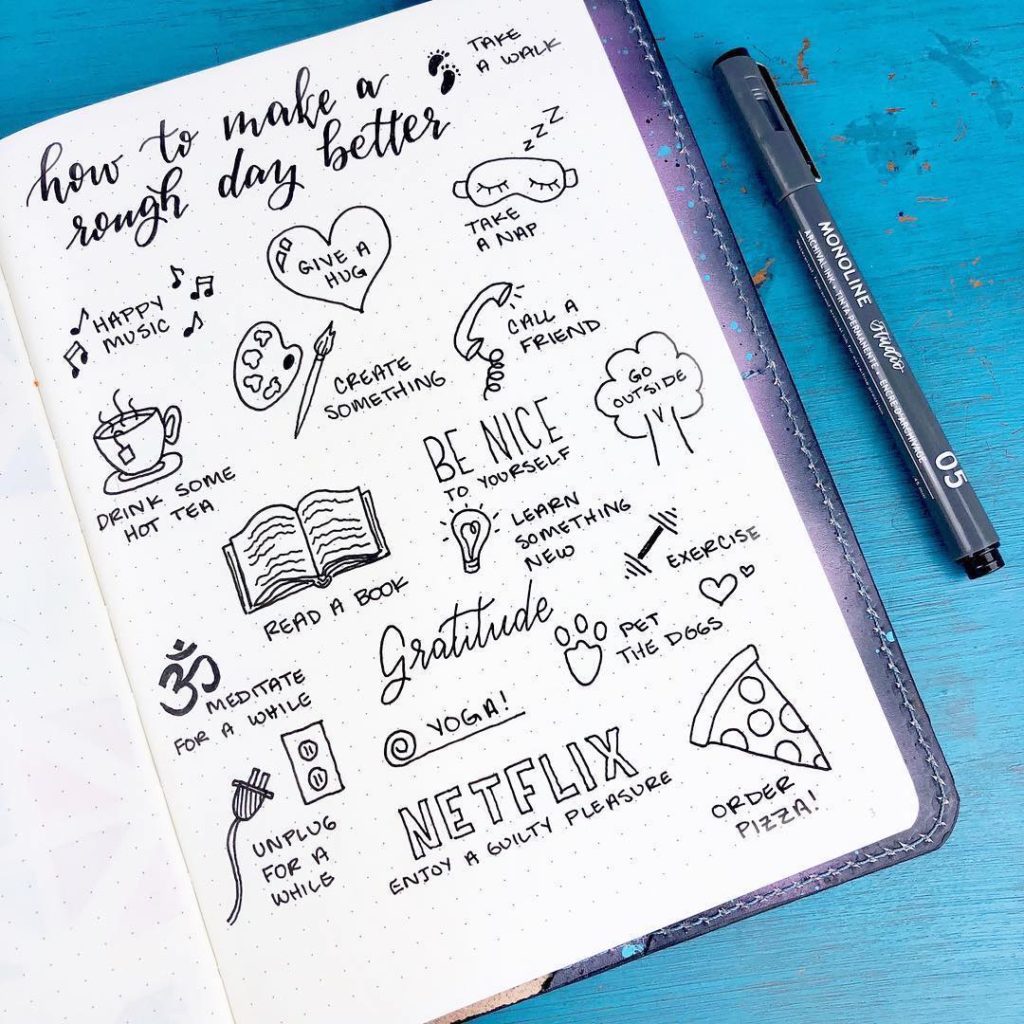 how to make a
rough day better
TAKE
A WALK
Z Z Z
TAKE
A NAP
GIVE A
HUG
HAPPY
MUSIC
CREATE
SOMETHING
CALL A
FRIEND
GO
OUTSIDE
DRINK SOME
HOT TEA
BE NICE
TO YOURSELF
READ A BOOK
LEARN
SOMETHING
NEW
EXERCISE
ॐ
MEDITATE
FOR A WHILE
Gratitude
PET
THE DOGS
YOGA!
UNPLUG
FOR A
WHILE
NETFLIX
ENJOY A GUILTY PLEASURE
ORDER
PIZZA!
3
MONOLINE Studio
ARCHIVAL INK • TINTA PERMANENTE • ENCRE D'ARCHIVAGE
05